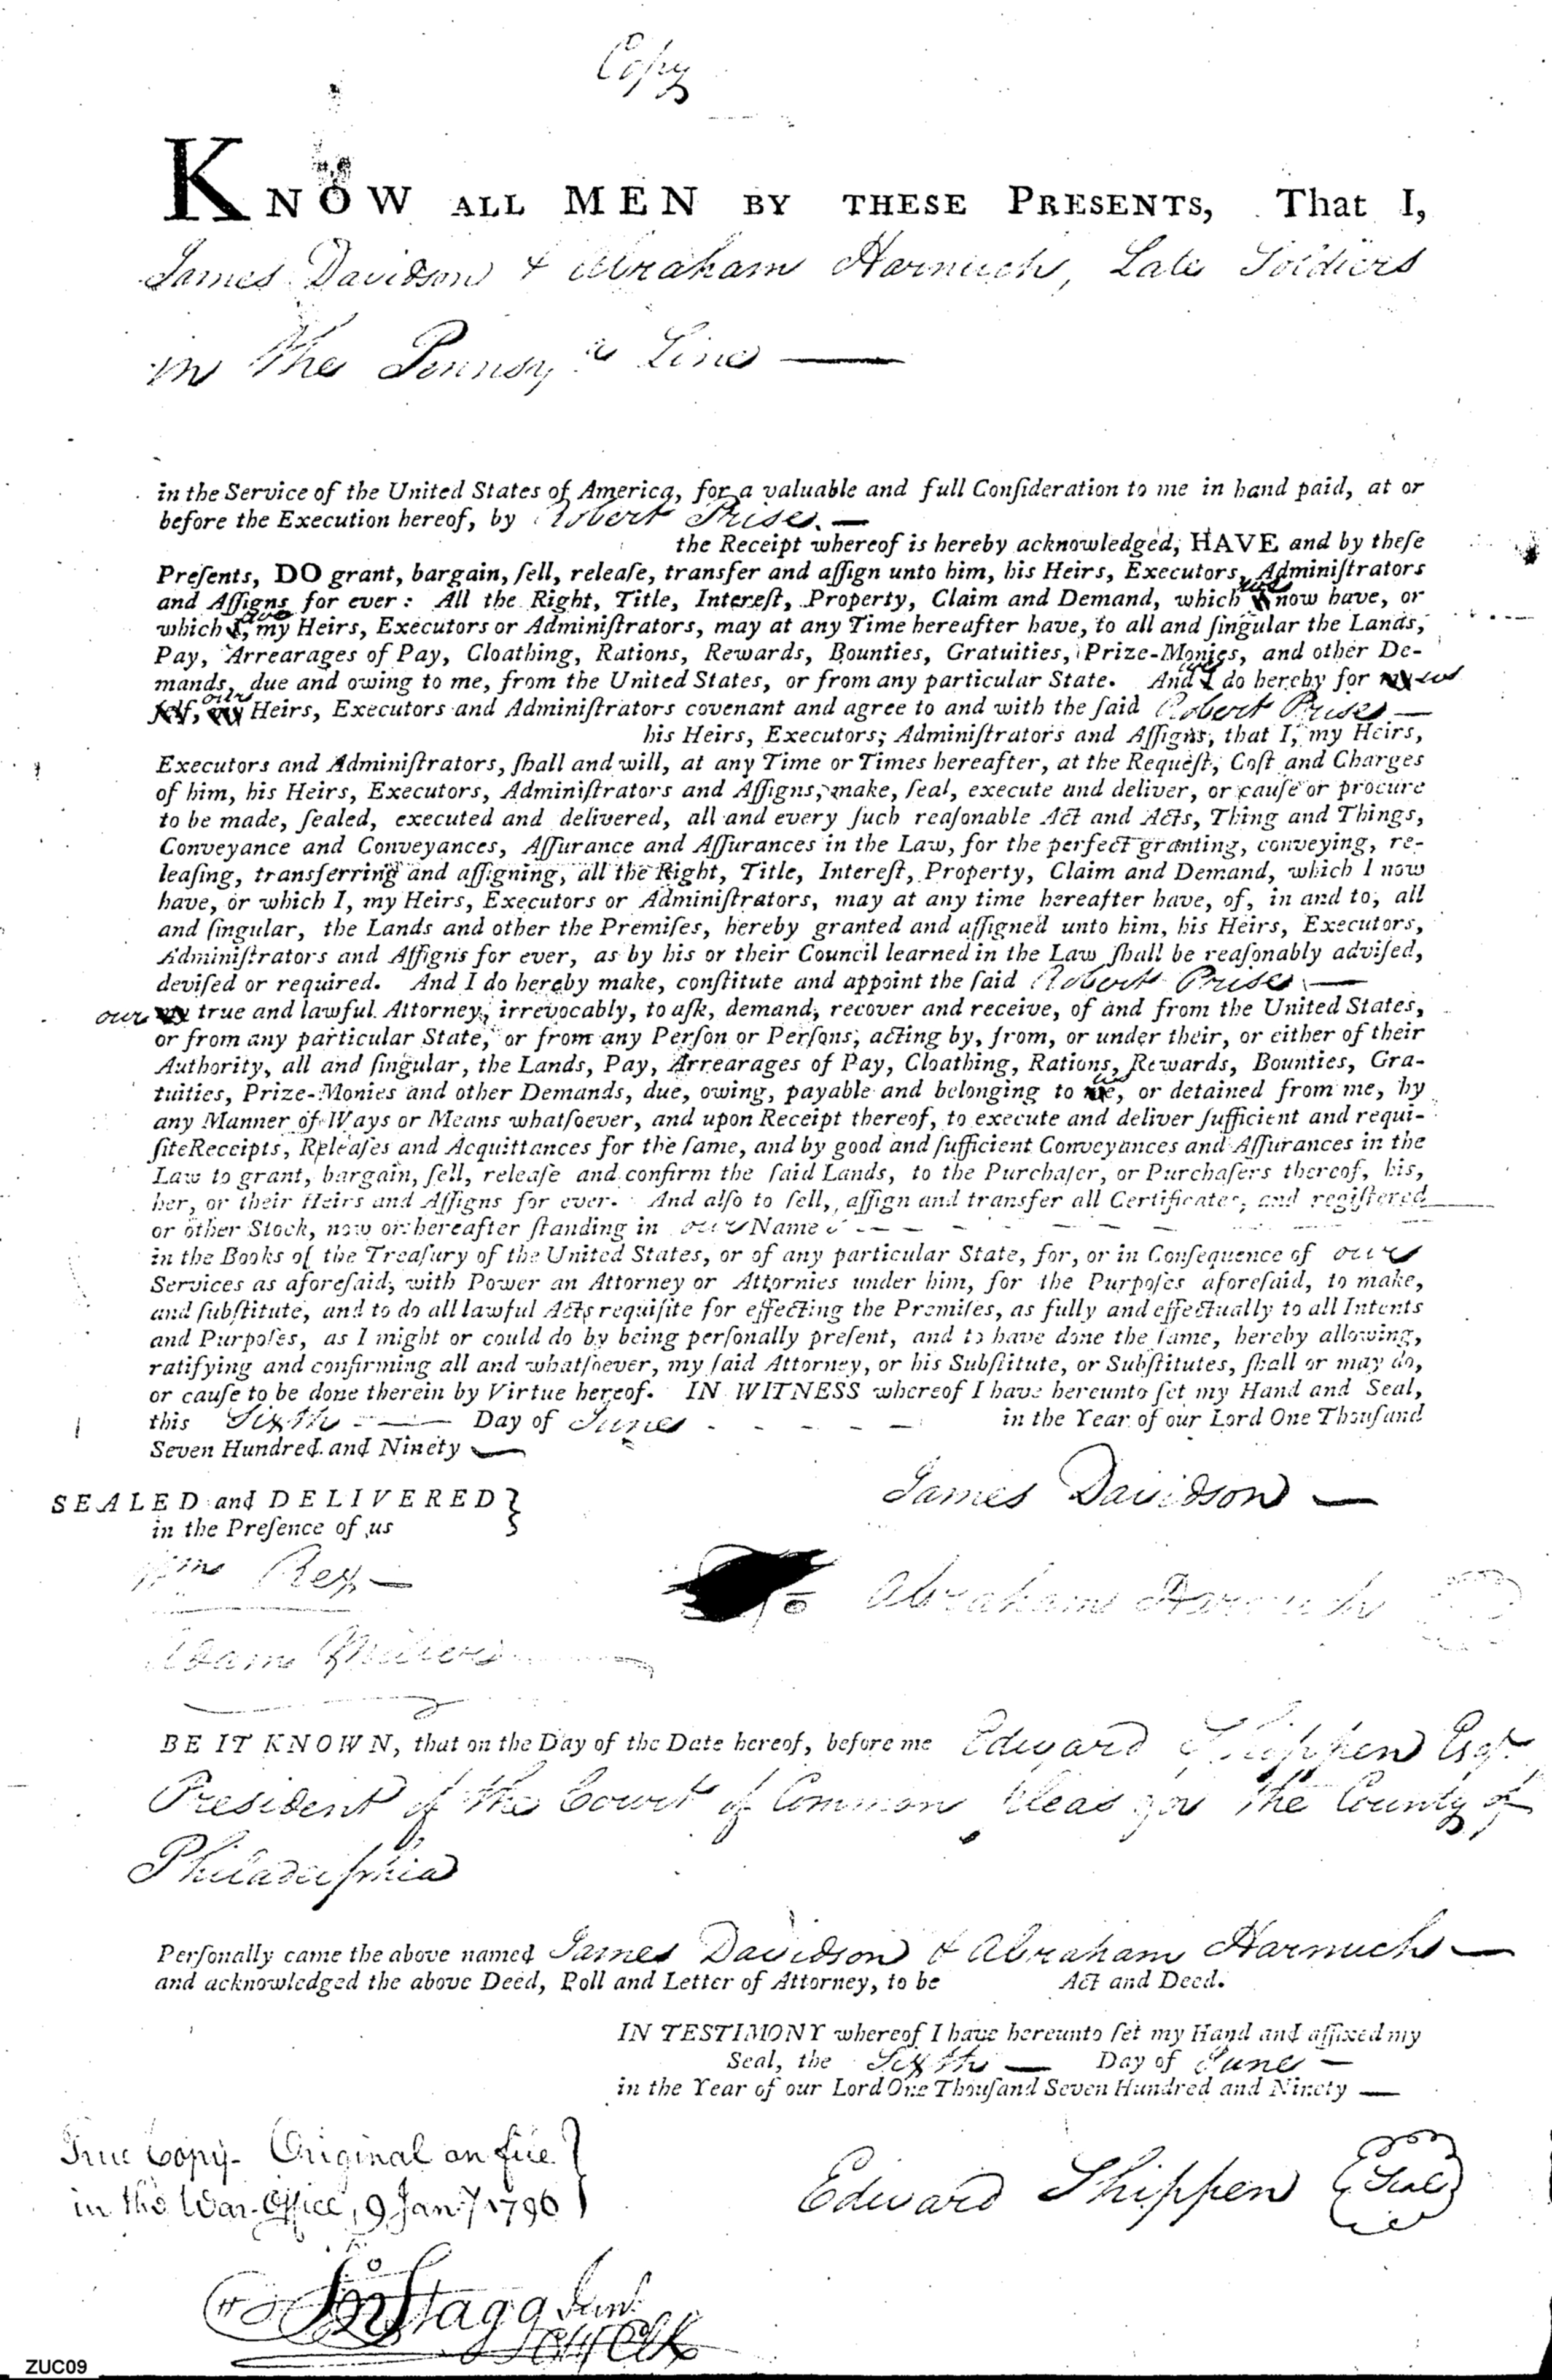 Copy
KNOW ALL MEN BY THESE PRESENTS, That I,
James Davidson & Abraham Harnuch, Late Soldiers
in the Pennsyᵃ Line —
in the Service of the United States of America, for a valuable and full Conſideration to me in hand paid, at or
before the Execution hereof, by Robert Prise. —
the Receipt whereof is hereby acknowledged, HAVE and by theſe
Preſents, DO grant, bargain, ſell, releaſe, transfer and aſſign unto him, his Heirs, Executors, Adminiſtrators
and Aſſigns for ever: All the Right, Title, Intereſt, Property, Claim and Demand, which we now have, or
which we, my Heirs, Executors or Adminiſtrators, may at any Time hereafter have, to all and ſingular the Lands,
Pay, Arrearages of Pay, Cloathing, Rations, Rewards, Bounties, Gratuities, Prize-Monies, and other De-
mands, due and owing to me, from the United States, or from any particular State. And I do hereby for us
our Heirs, Executors and Adminiſtrators covenant and agree to and with the ſaid Robert Prise —
his Heirs, Executors, Adminiſtrators and Aſſigns, that I, my Heirs,
Executors and Adminiſtrators, ſhall and will, at any Time or Times hereafter, at the Requeſt, Coſt and Charges
of him, his Heirs, Executors, Adminiſtrators and Aſſigns, make, ſeal, execute and deliver, or cauſe or procure
to be made, ſealed, executed and delivered, all and every ſuch reaſonable Act and Acts, Thing and Things,
Conveyance and Conveyances, Aſſurance and Aſſurances in the Law, for the perfect granting, conveying, re-
leaſing, transferring and aſſigning, all the Right, Title, Intereſt, Property, Claim and Demand, which I now
have, or which I, my Heirs, Executors or Adminiſtrators, may at any time hereafter have, of, in and to, all
and ſingular, the Lands and other the Premiſes, hereby granted and aſſigned unto him, his Heirs, Executors,
Adminiſtrators and Aſſigns for ever, as by his or their Council learned in the Law ſhall be reaſonably adviſed,
deviſed or required. And I do hereby make, conſtitute and appoint the ſaid Robert Prise —
our true and lawful Attorney, irrevocably, to aſk, demand, recover and receive, of and from the United States,
or from any particular State, or from any Perſon or Perſons, acting by, from, or under their, or either of their
Authority, all and ſingular, the Lands, Pay, Arrearages of Pay, Cloathing, Rations, Rewards, Bounties, Gra-
tuities, Prize-Monies and other Demands, due, owing, payable and belonging to us, or detained from me, by
any Manner of Ways or Means whatſoever, and upon Receipt thereof, to execute and deliver ſufficient and requi-
ſite Receipts, Releaſes and Acquittances for the ſame, and by good and ſufficient Conveyances and Aſſurances in the
Law to grant, bargain, ſell, releaſe and confirm the ſaid Lands, to the Purchaſer, or Purchaſers thereof, his,
her, or their Heirs and Aſſigns for ever. And alſo to ſell, aſſign and transfer all Certificates, and regiſtered
or other Stock, now or hereafter ſtanding in our Name s — — —
in the Books of the Treaſury of the United States, or of any particular State, for, or in Conſequence of our
Services as aforeſaid, with Power an Attorney or Attornies under him, for the Purpoſes aforeſaid, to make,
and ſubſtitute, and to do all lawful Acts requiſite for effecting the Premiſes, as fully and effectually to all Intents
and Purpoſes, as I might or could do by being perſonally preſent, and to have done the ſame, hereby allowing,
ratifying and confirming all and whatſoever, my ſaid Attorney, or his Subſtitute, or Subſtitutes, ſhall or may do,
or cauſe to be done therein by Virtue hereof. IN WITNESS whereof I have hereunto ſet my Hand and Seal,
this Sixth — Day of June - - - - in the Year of our Lord One Thouſand
Seven Hundred and Ninety —
SEALED and DELIVERED }
in the Preſence of us
James Davidson —
Wm Rex —
Abraham Harnuch
Adam Miller
BE IT KNOWN, that on the Day of the Date hereof, before me Edward Shippen Esqr.
President of the Court of Common Pleas for the County of
Philadelphia
Perſonally came the above named James Davidson & Abraham Harnuch —
and acknowledged the above Deed, Poll and Letter of Attorney, to be Act and Deed.
IN TESTIMONY whereof I have hereunto ſet my Hand and affixed my
Seal, the Sixth — Day of June —
in the Year of our Lord One Thouſand Seven Hundred and Ninety —
True Copy - Original on file }
in the War Office, 9 Jany 1796
Edward Shippen Seal
Jno Stagg Junr.
ZUC09